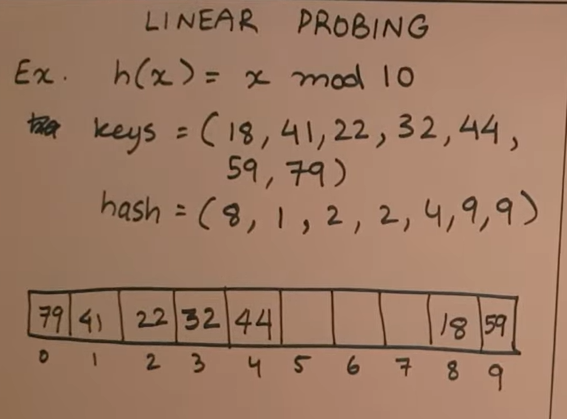 LINEAR PROBING
Ex. h(x) = x mod 10
keys = (18, 41, 22, 32, 44,
59, 79)
hash = (8, 1, 2, 2, 4, 9, 9)
79 41 22 32 44 18 59
0 1 2 3 4 5 6 7 8 9